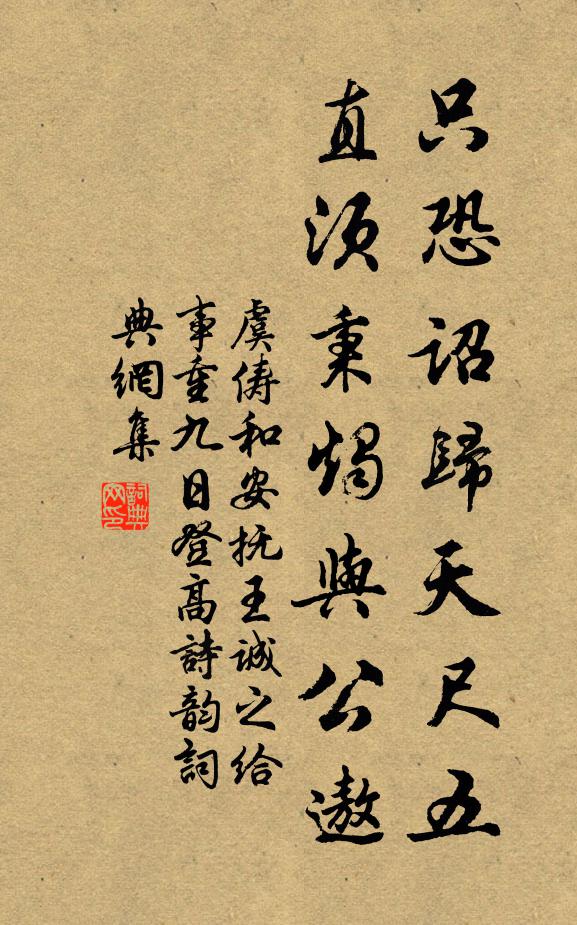 只恐詔歸天尺五
直須秉燭與公遨
虞儔和安抚王誠之给
事重九日登高詩韵詞
典網集
詞典网印